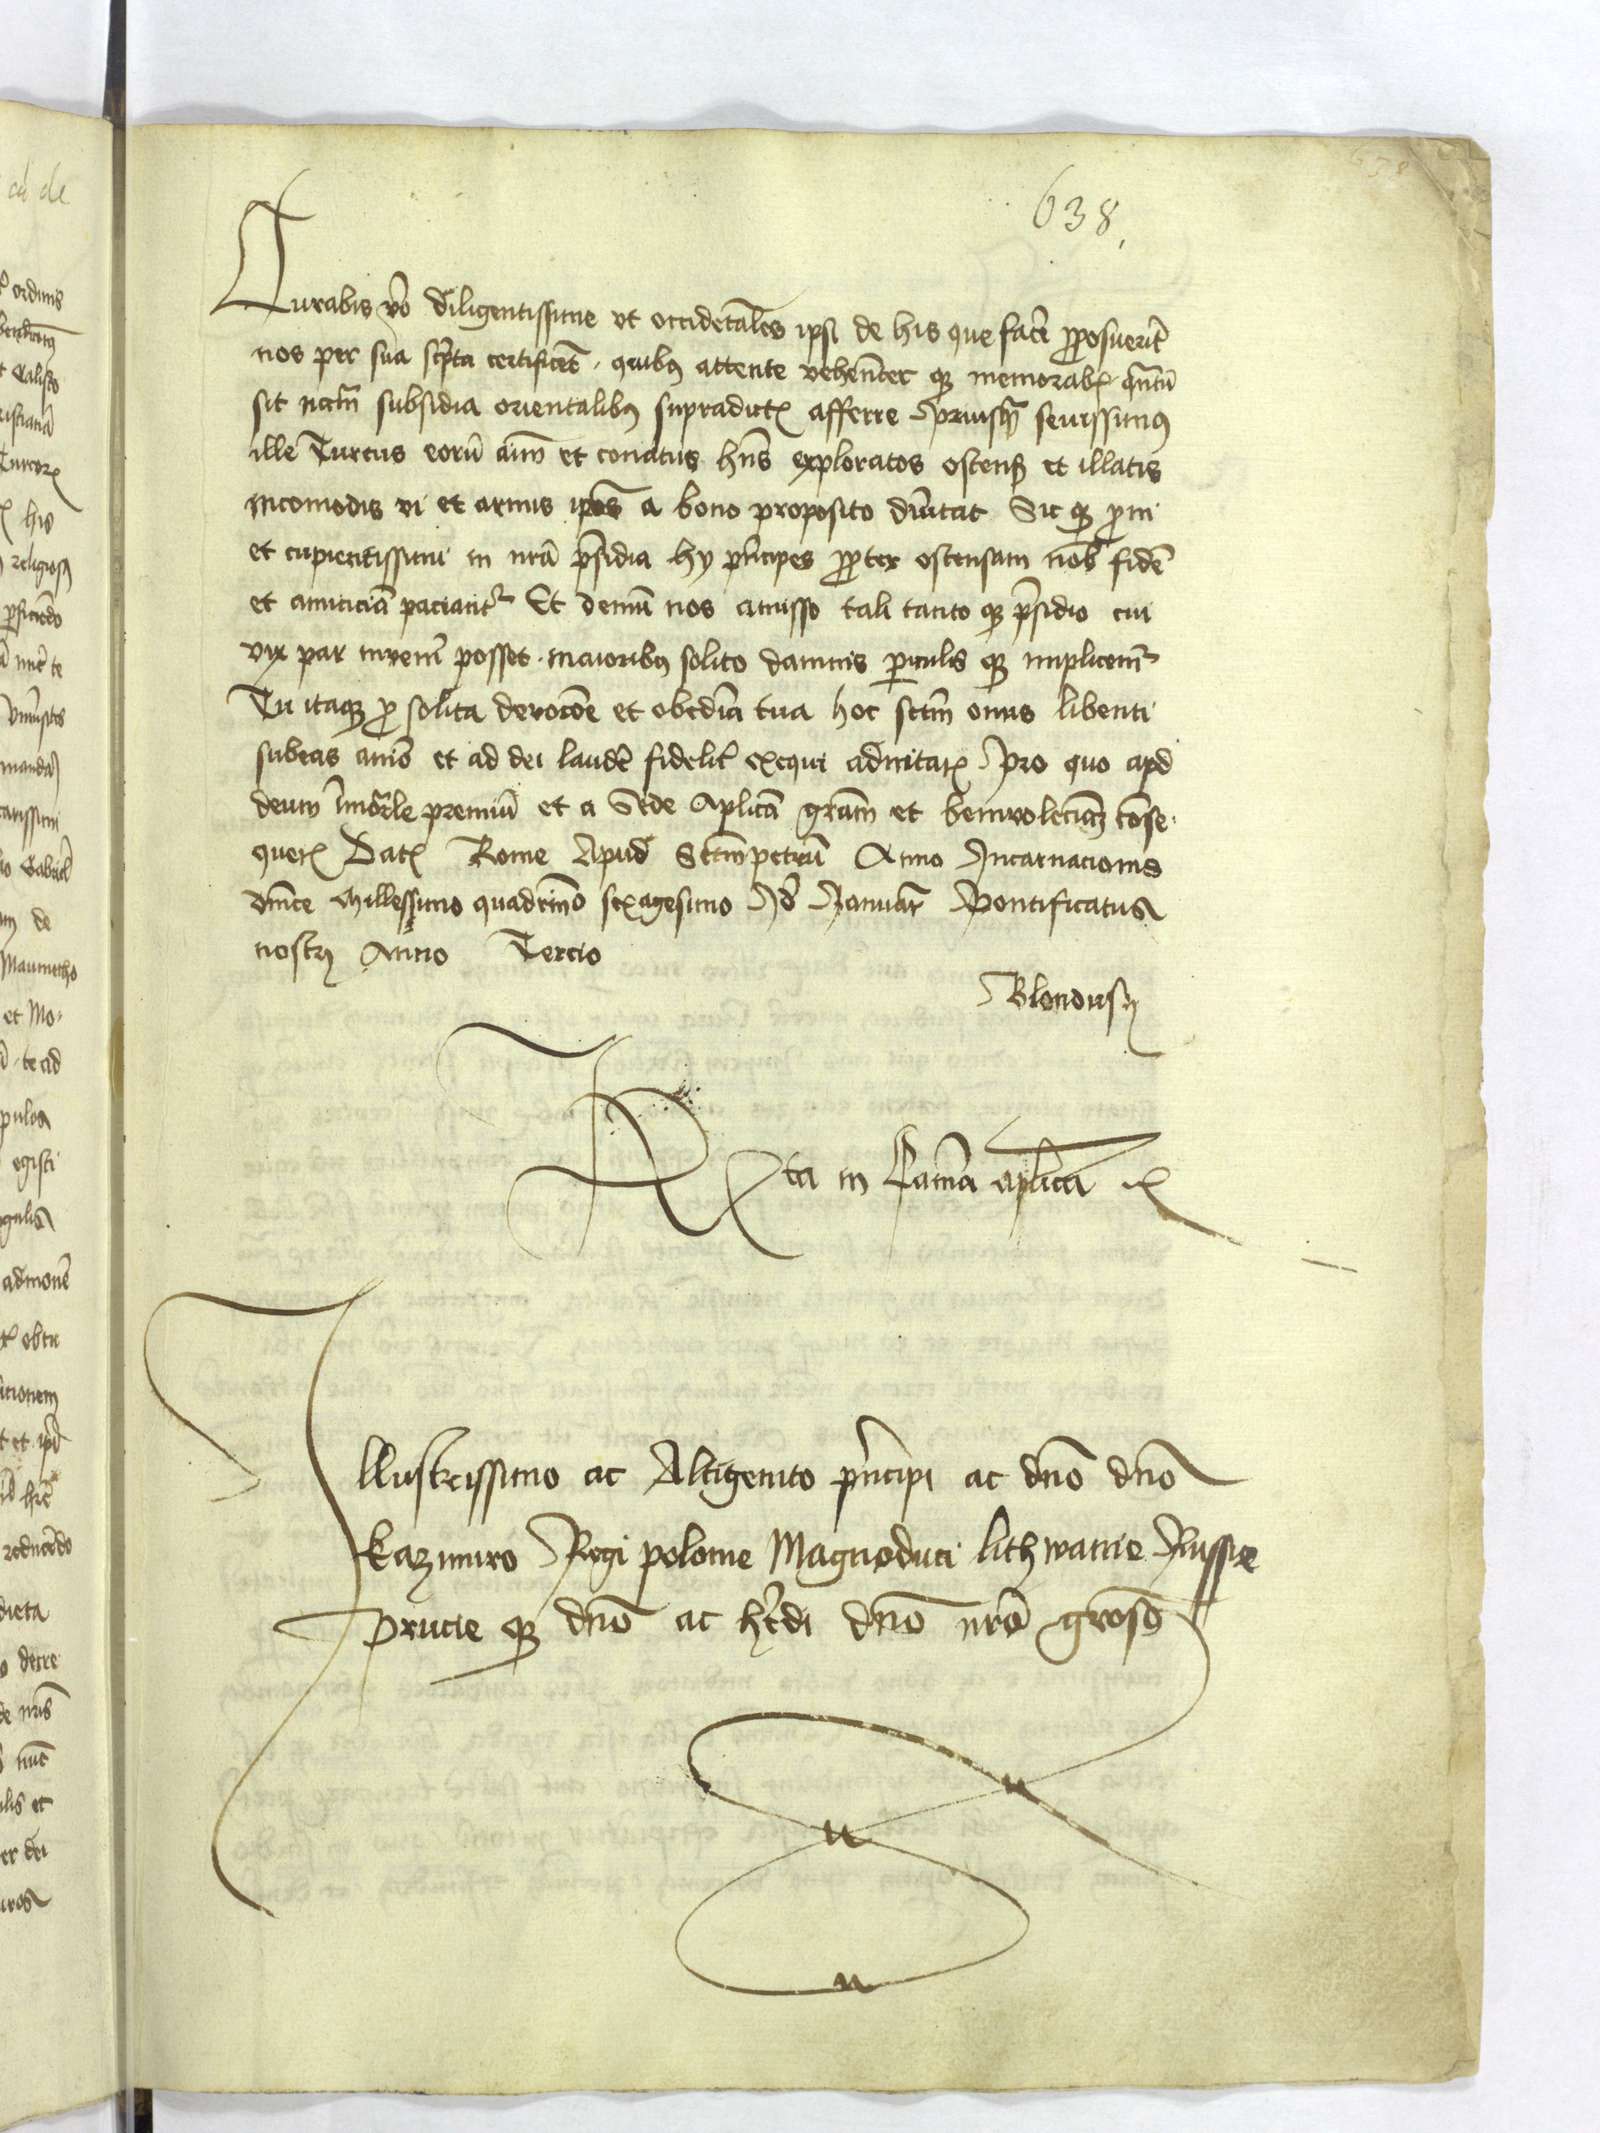 638
638.
Curabis vo diligentissime vt occidetales ipsi de his que facere pposuerit
nos per sua scpta certificet. quibus attente vehementer qz memorabis quantu
sit nccrm subsidia orientalibus supradictis afferre Priusqz seuissimus
ille Turcus eoru aim et conatus hns exploratos ostensis et illatis
Incomodis vi et armis ipos a bono proposito diuertat Sic qz pm
et cupientissimi in nra psidia hy pncipes ppter ostensam nob fide
et amicicia paciantr Et demu nos amisso tali tanto qz psidio cui
vix par inveniri posset. maioribus solito damnis periculis qz implicemr
Tu itaqz p solita devocoe et obedia tua hoc sctm onus libenti
subeas aio et ad dei laude fidelit exequi adnitaris Pro quo apd
deum imortle premiu et a Sede Aplica gram et beniuolenciam conse-
queris Datis Rome Apud Sctmpetru Anno Incarnacionis
dnice Millessimo quadrimo sexagesimo Id Januar Pontificatus
nostri Anno Tercio
Blondus
Rta in Cama aplica
Illustrissimo ac Altigenito pncipi ac dno dno
Kazimiro Regi polonie Magnoduci lithwanie Russie
Prucie qz dno ac hredi dno nro groso